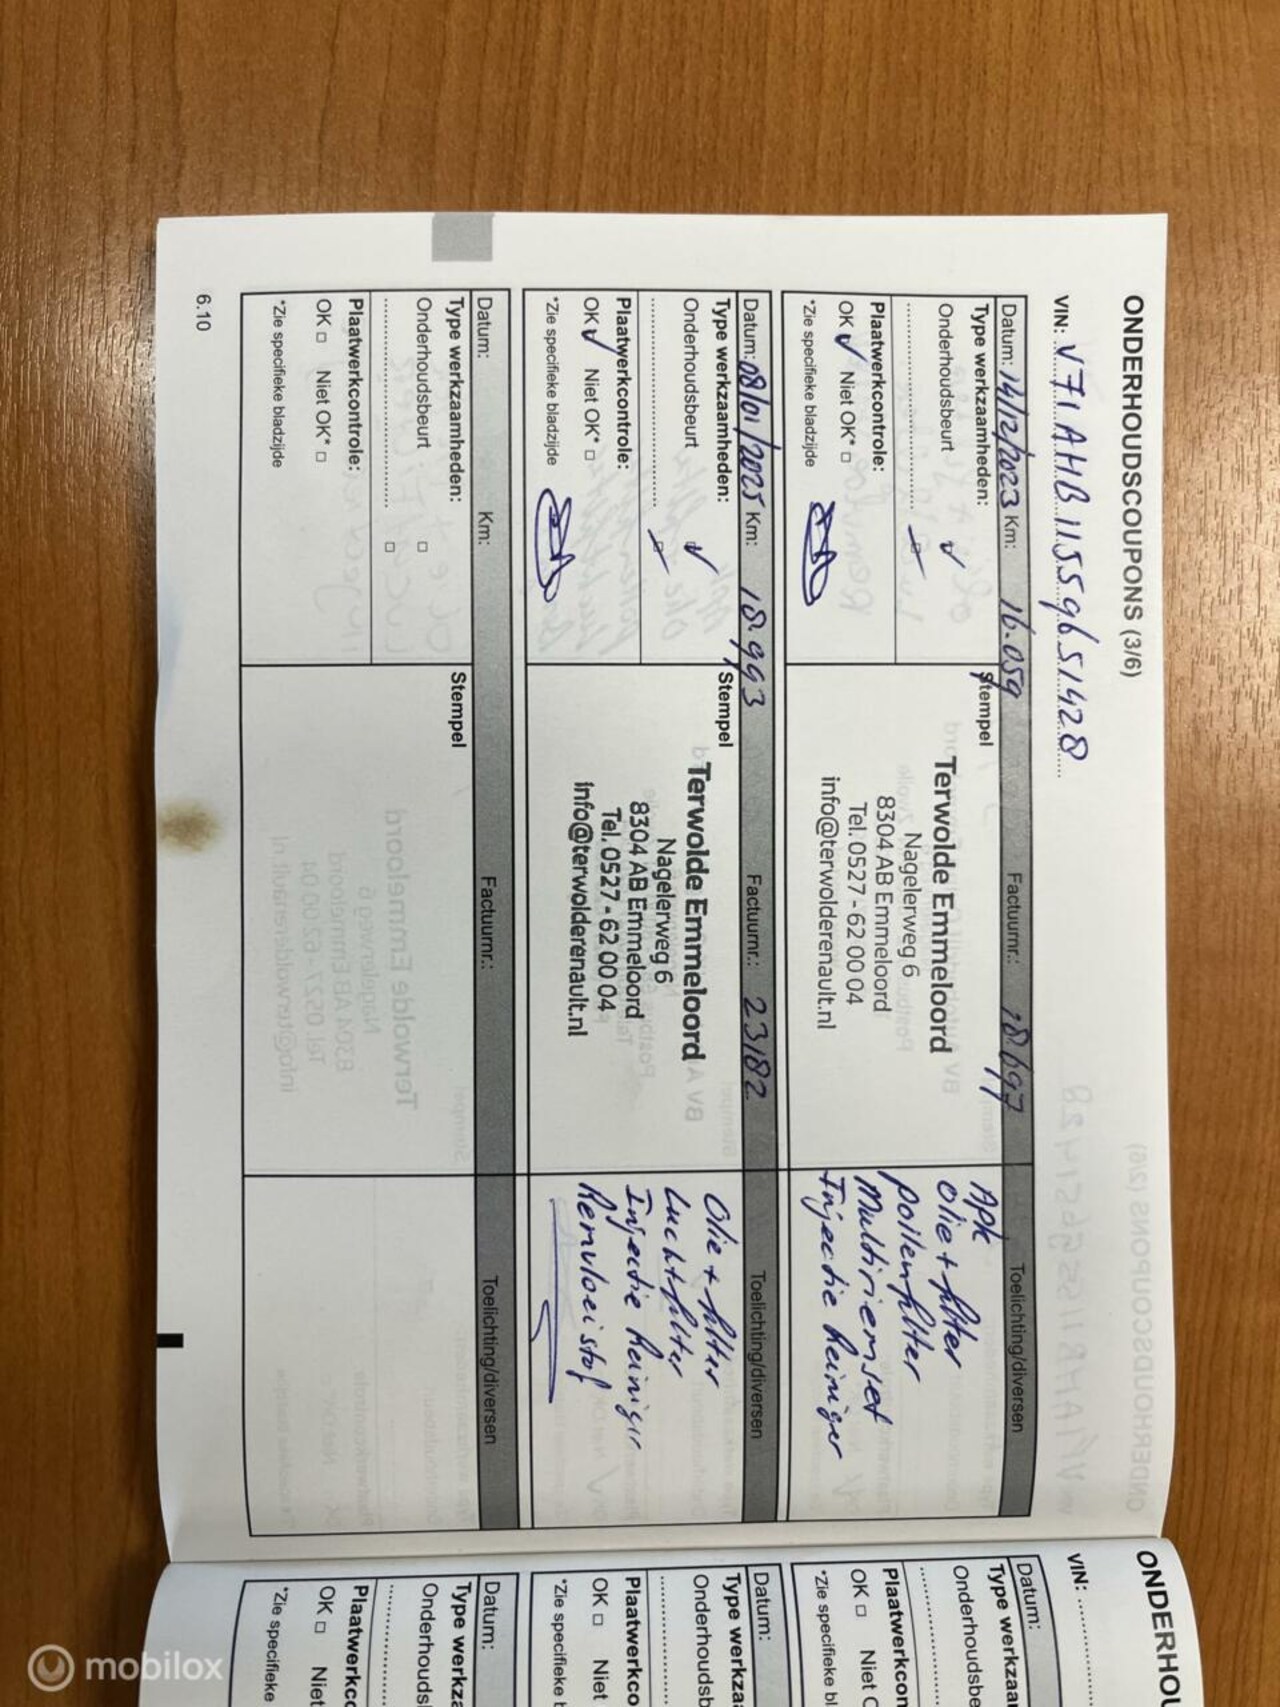 ONDERHOUDSCOUPONS (3/6)
VIN: V71AHB11559651428
Datum: 14/12/2023 Km: 16.059 Factuurnr.: 18.697 Toelichting/diversen
Type werkzaamheden:
Onderhoudsbeurt
Plaatwerkcontrole:
OK Niet OK*
*Zie specifieke bladzijde
Stempel
Terwolde Emmeloord
Nagelerweg 6
8304 AB Emmeloord
Tel. 0527 - 62 00 04
info@terwolderenault.nl
Apk
Olie + filter
pollenfilter
Multiriemset
Injectie Reiniger
Datum: 08/01/2025 Km: 18.993 Factuurnr.: 23182 Toelichting/diversen
Type werkzaamheden:
Onderhoudsbeurt
Plaatwerkcontrole:
OK Niet OK*
*Zie specifieke bladzijde
Stempel
Terwolde Emmeloord
Nagelerweg 6
8304 AB Emmeloord
Tel. 0527 - 62 00 04
info@terwolderenault.nl
Olie + filter
Luchtfilter
Injectie Reiniger
Remvloeistof
Datum: Km: Factuurnr.: Toelichting/diversen
Type werkzaamheden:
Onderhoudsbeurt
Plaatwerkcontrole:
OK Niet OK*
*Zie specifieke bladzijde
Stempel
6.10
ONDERHOU
VIN:
Datum:
Type werkzaa
Onderhoudsbe
Plaatwerkcon
OK Niet O
*Zie specifieke bl
Datum:
Type werkza
Onderhoudsb
Plaatwerkco
OK Niet
*Zie specifieke b
Datum:
Type werkza
Onderhouds
Plaatwerkco
OK Niet
*Zie specifieke
mobilox